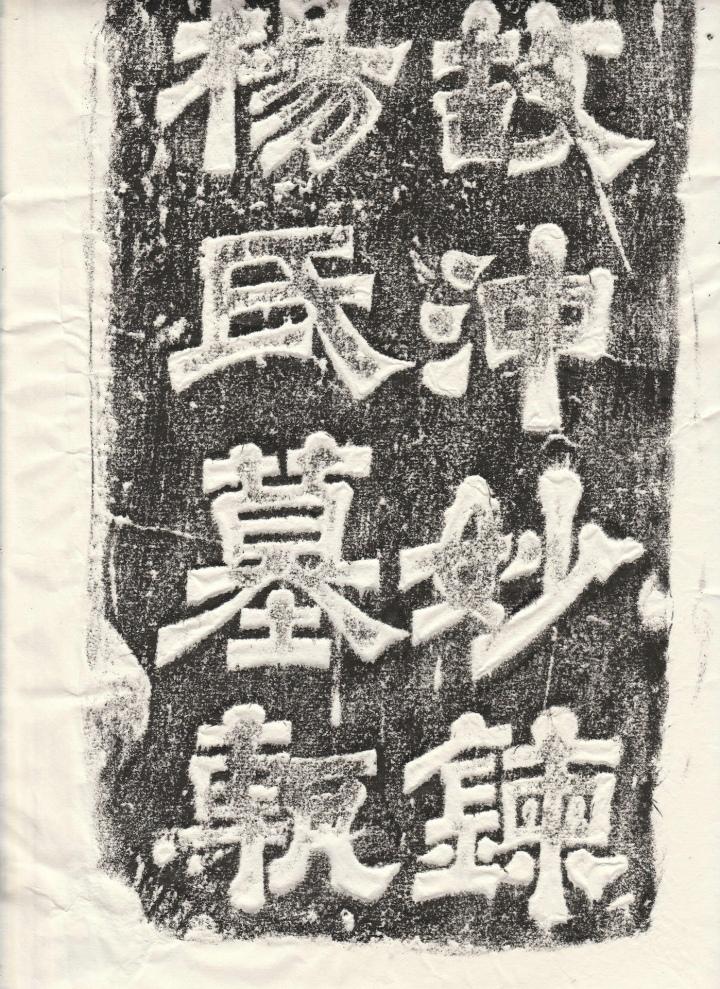 故沖妙鍊
楊氏墓甎